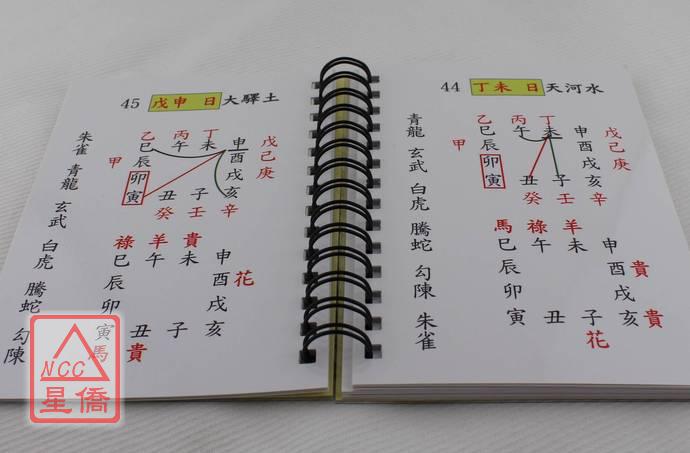 45 戊申 日 大驛土
乙 丙 丁
巳 午 未 申 戊
甲 辰 酉 己
卯 戌 庚
寅 丑 子 亥
癸 壬 辛
祿 羊 貴
巳 午 未 申
辰 酉 花
卯 戌
寅 丑 子 亥
馬 貴
朱雀
青龍
玄武
白虎
騰蛇
勾陳
NCC
星僑
44 丁未 日 天河水
乙 丙 丁
巳 午 未 申 戊
甲 辰 酉 己
卯 戌 庚
寅 丑 子 亥
癸 壬 辛
馬 祿 羊
巳 午 未 申
辰 酉 貴
卯 戌
寅 丑 子 亥 貴
花
青龍
玄武
白虎
騰蛇
勾陳
朱雀